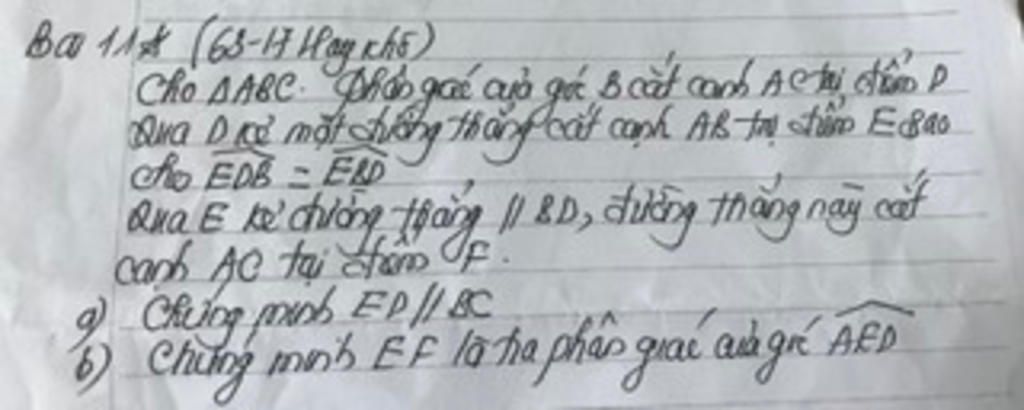 Bài 11* (63-17 Hay khó)
Cho ΔABC. Phân giác của góc B cắt cạnh AC tại điểm D
Qua D kẻ một đường thẳng cắt cạnh AB tại điểm E sao
cho EDB = EBD
Qua E kẻ đường thẳng // BD, đường thẳng này cắt
cạnh AC tại điểm F.
a) Chứng minh ED // BC
b) Chứng minh EF là tia phân giác của góc AED